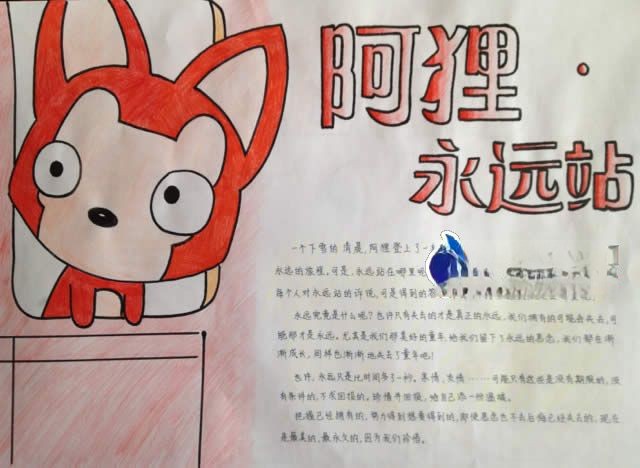 阿狸·
永远站
一个下雪的清晨,阿狸登上了一
永远的旅程,可是,永远站在哪里呢
每个人对永远站的诉说,可是得到的答
永远究竟是什么呢?也许只有失去的才是真正的永远,我们拥有的可能会失去,可
能那才是永远。尤其是我们那美好的童年,给我们留下了永远的思念,我们都在渐
渐成长,同样也渐渐地失去了童年吧!
也许,永远只是比时间多了一秒。亲情,友情……可能只有这些是没有期限的,没
有条件的,不求回报的。珍惜并回报,给自己添一些温暖。
把握已经拥有的,努力得到想要得到的,即使思念也不去后悔已经失去的,现在
是最美的,最永久的,因为我们珍惜。